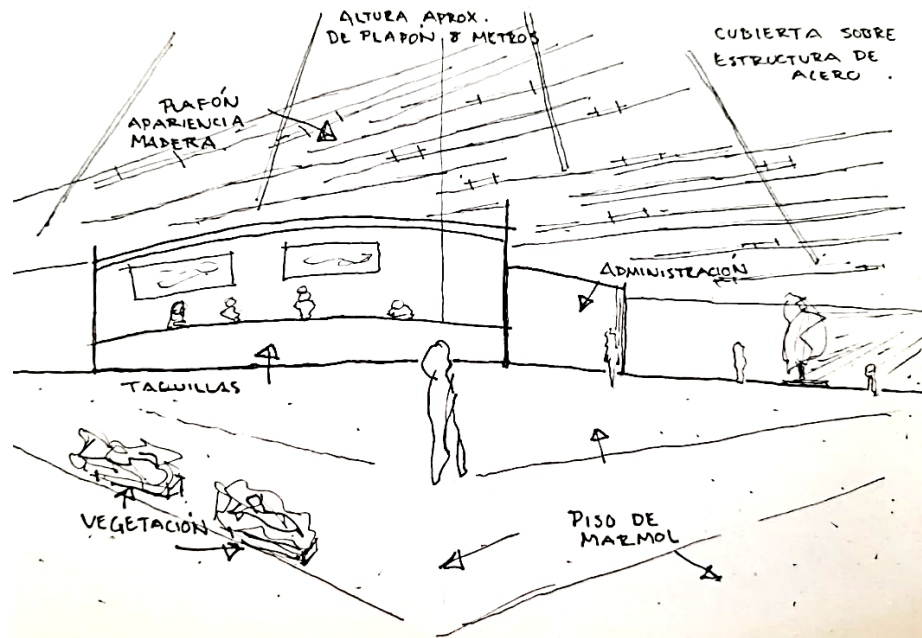 ALTURA APROX.
DE PLAFÓN 8 METROS
CUBIERTA SOBRE
ESTRUCTURA DE
ACERO.
PLAFÓN
APARIENCIA
MADERA.
ADMINISTRACIÓN
TAQUILLAS
VEGETACIÓN
PISO DE
MARMOL